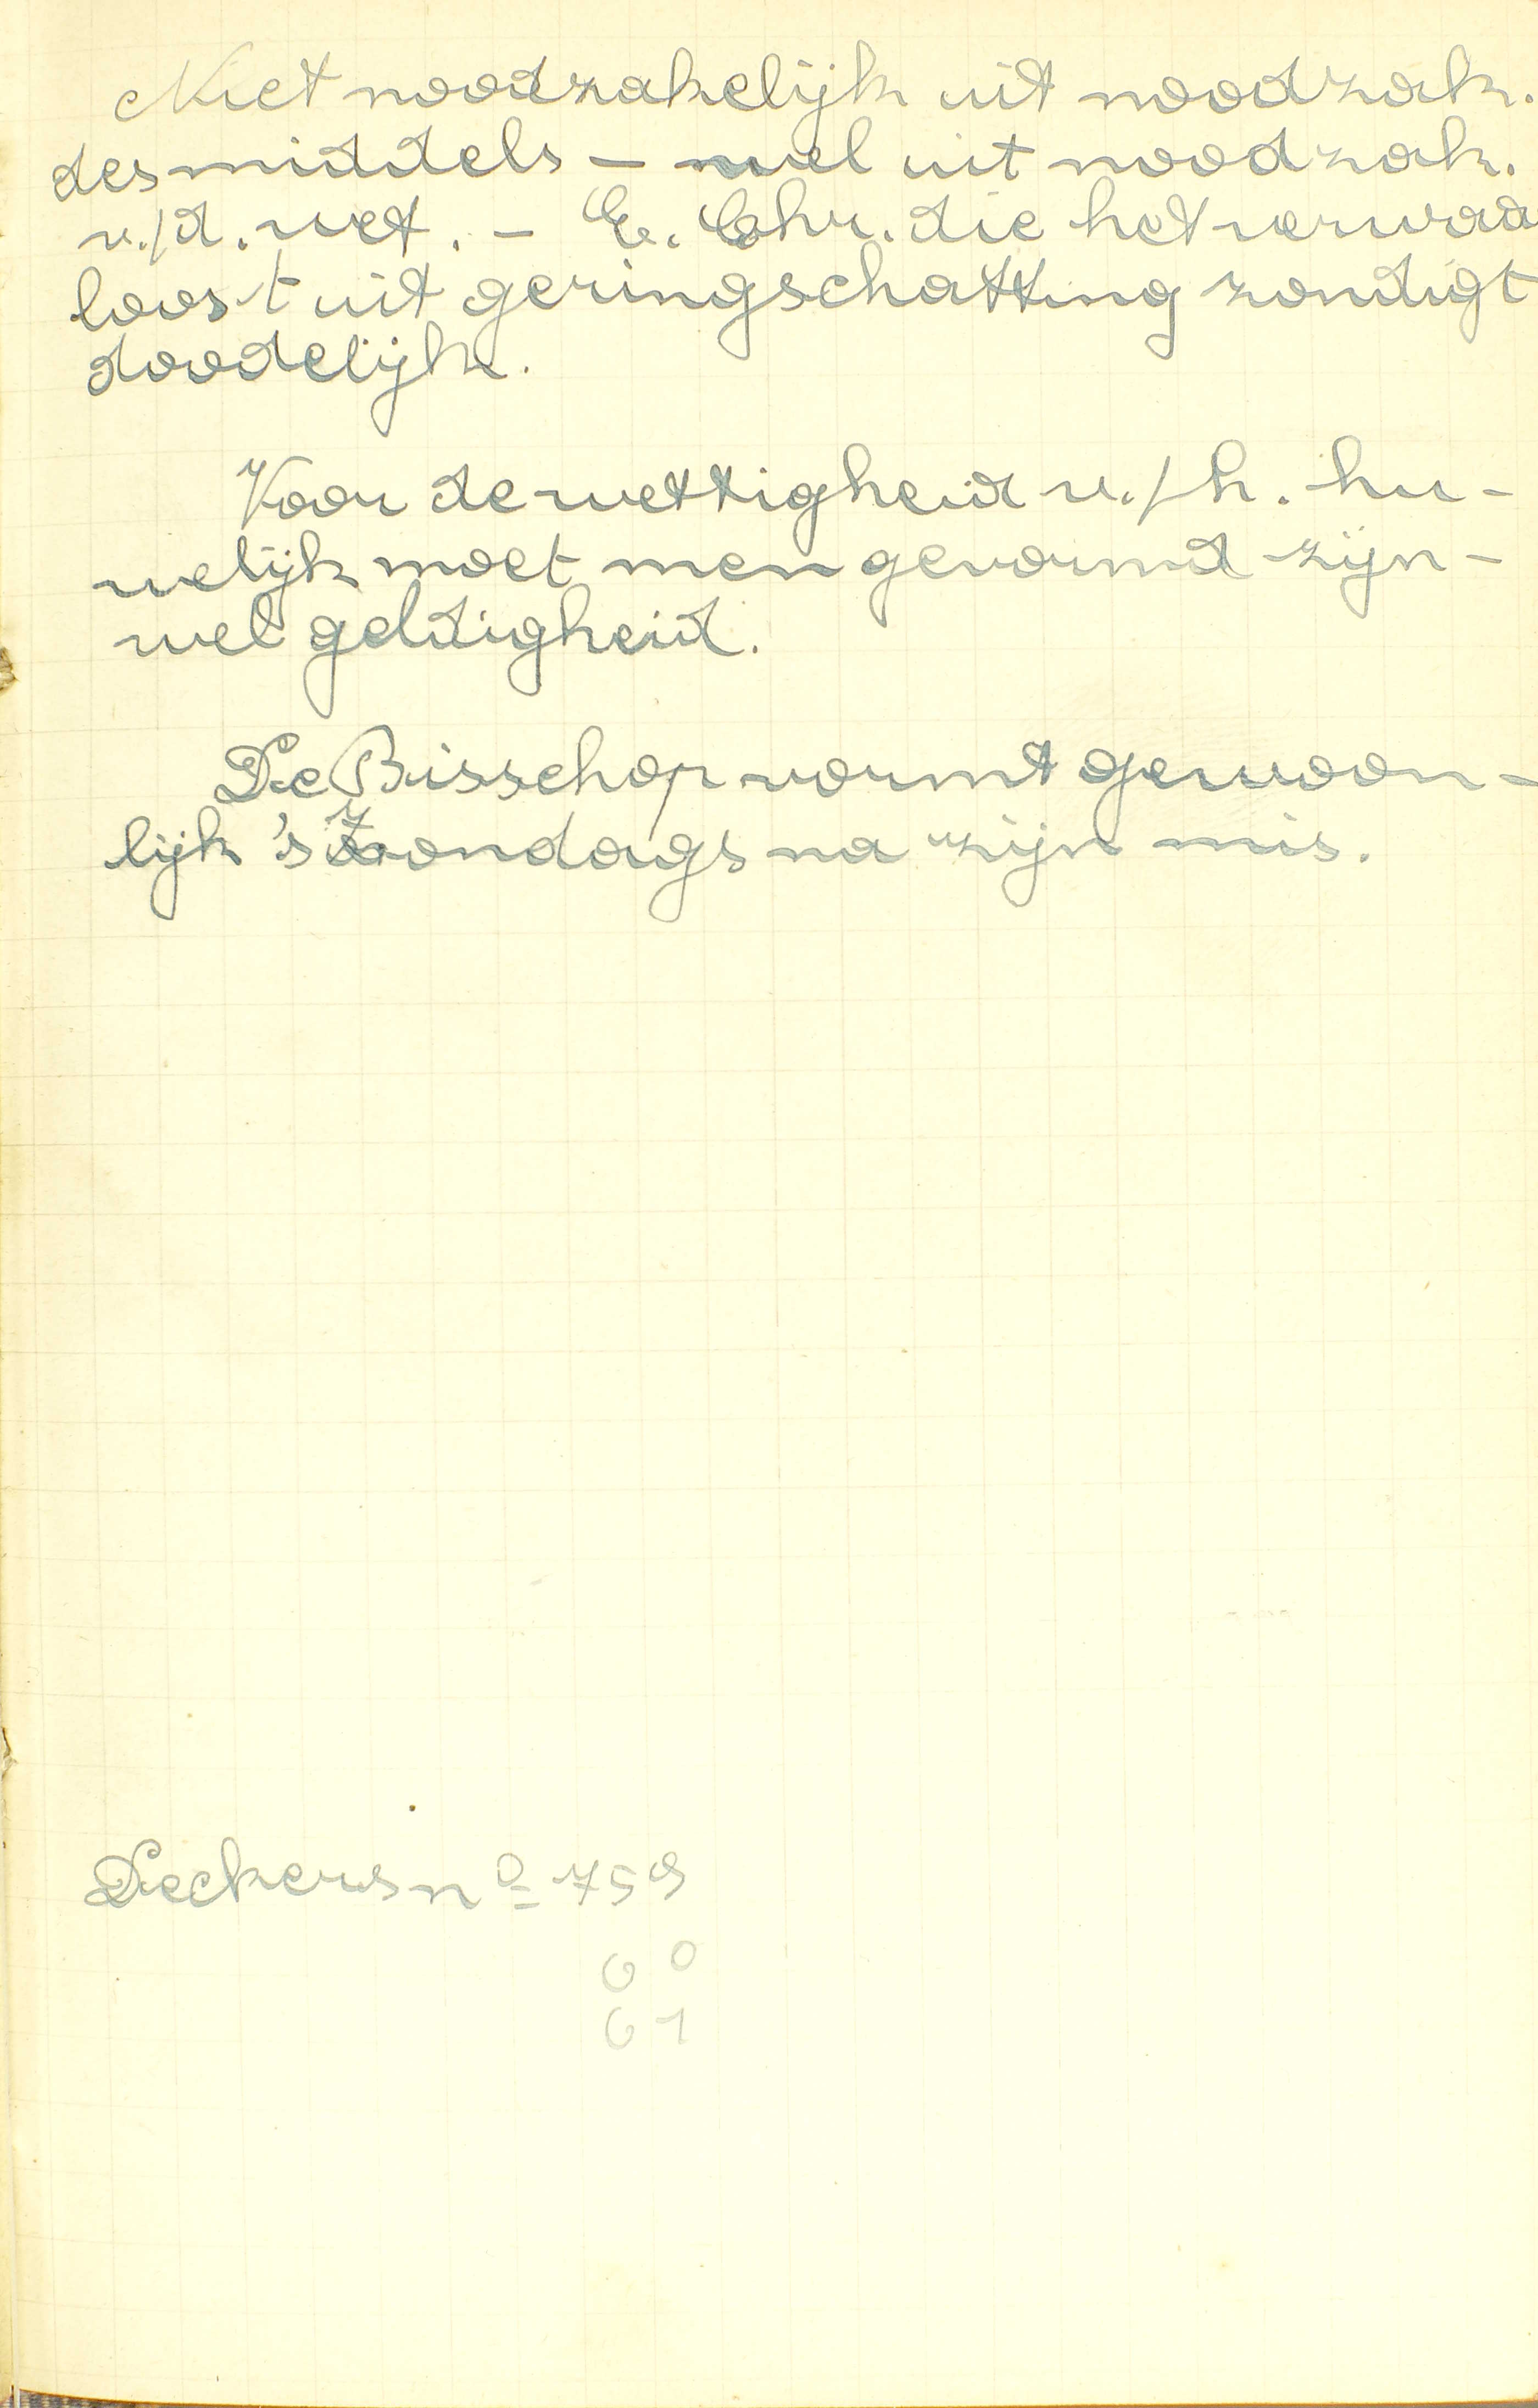 Niet noodzakelijk uit noodzak.
des middels – wel uit noodzak.
v./d. wet. – E. Chr. die het verwaa
loos-t uit geringschatting zondigt
doodelijk.
Voor de wettigheid v./h. hu-
welijk moet men gevormd zijn –
wel geldigheid.
De Bisschop vormt gewoon-
lijk 's Zondags na zijn mis.
Deckers nº 759
60
61